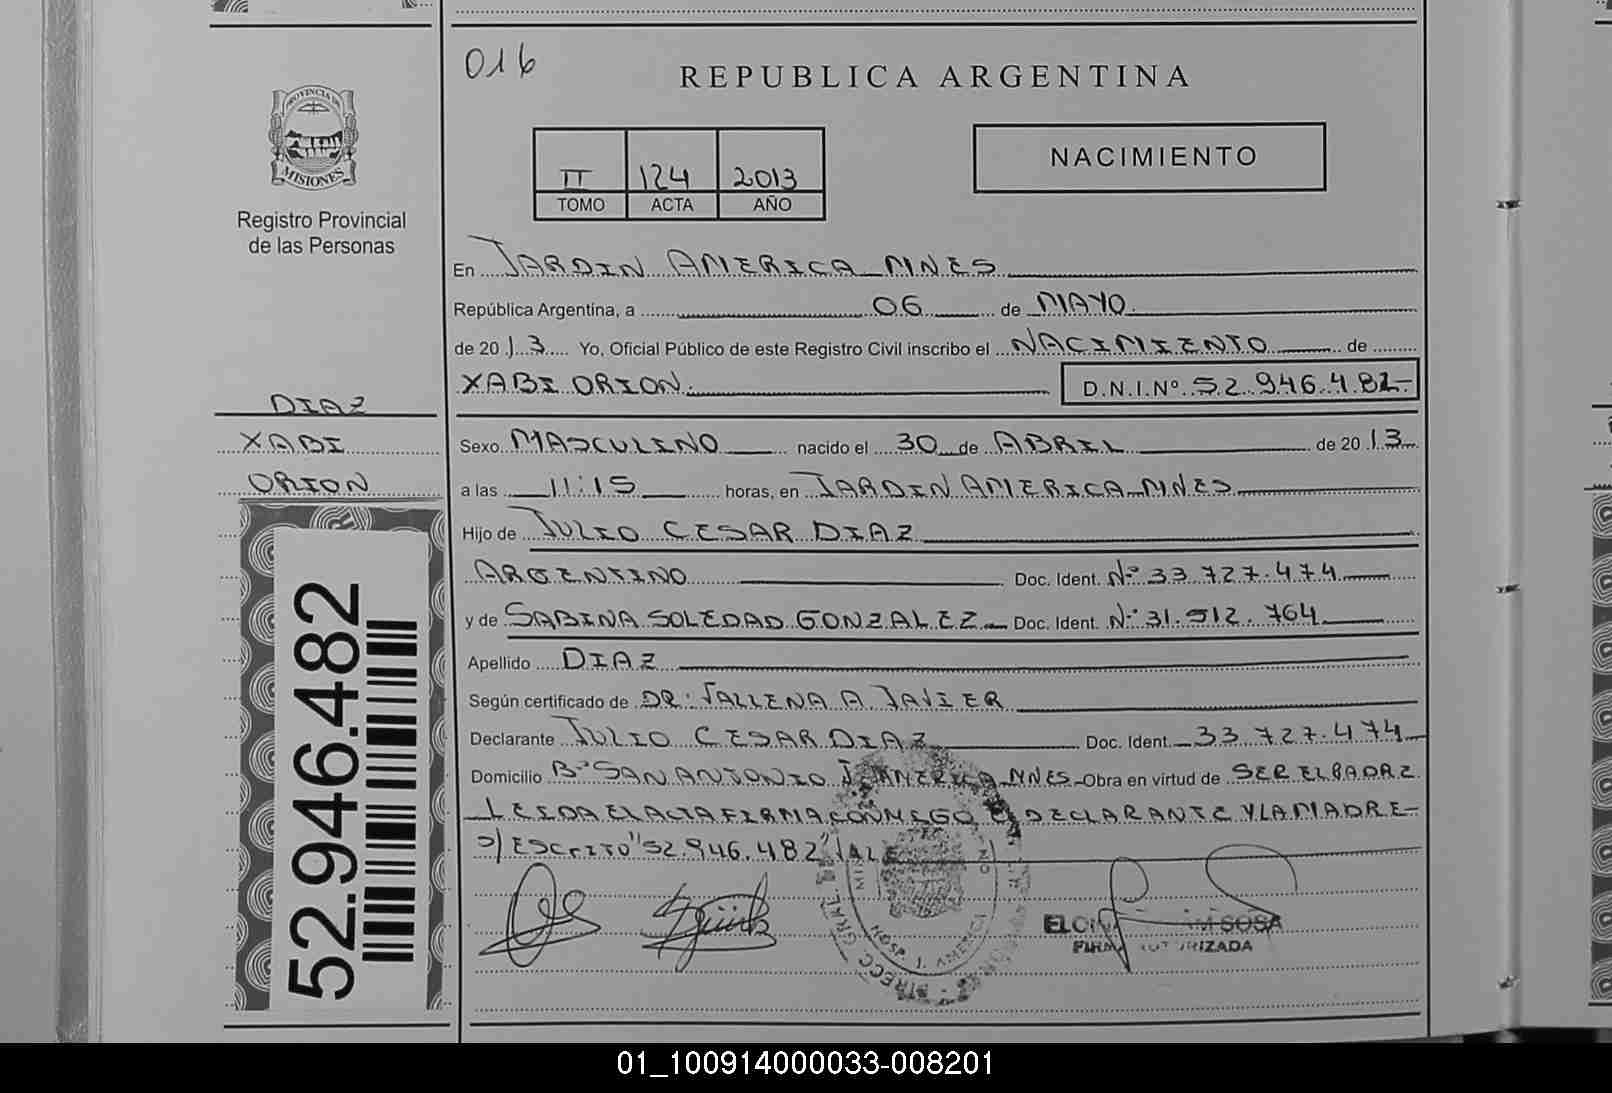 016
REPUBLICA ARGENTINA
PROVINCIA DE
MISIONES
Registro Provincial
de las Personas
II 124 2013
TOMO ACTA AÑO
NACIMIENTO
En JARDIN AMERICA MNES
República Argentina, a 06 de MAYO
de 2013 Yo, Oficial Público de este Registro Civil inscribo el NACIMIENTO de
XABI ORION. D.N.I.Nº 52.946.482-
DIAZ
XABI
ORION
Sexo MASCULINO nacido el 30 de ABRIL de 2013
a las 11:15 horas, en JARDIN AMERICA MNES
Hijo de JULIO CESAR DIAZ
ARGENTINO Doc. Ident. Nº 33.727.474
y de SABINA SOLEDAD GONZALEZ Doc. Ident. Nº 31.512.764
Apellido DIAZ
Según certificado de DR: VALLENA A. JAVIER
Declarante JULIO CESAR DIAZ Doc. Ident. 33.727.474
Domicilio Bº SAN ANTONIO J. AMERICA MNES Obra en virtud de SER EL PADRE
LEIDA EL ACTA FIRMA CONMIGO EL DECLARANTE Y LA MADRE
S/ ESCRITO "52.946.482" VALE
52.946.482
HOSP. J. AMERICA
DIRECC. GRAL.
SOSA
FIRMA AUTORIZADA
01_100914000033-008201